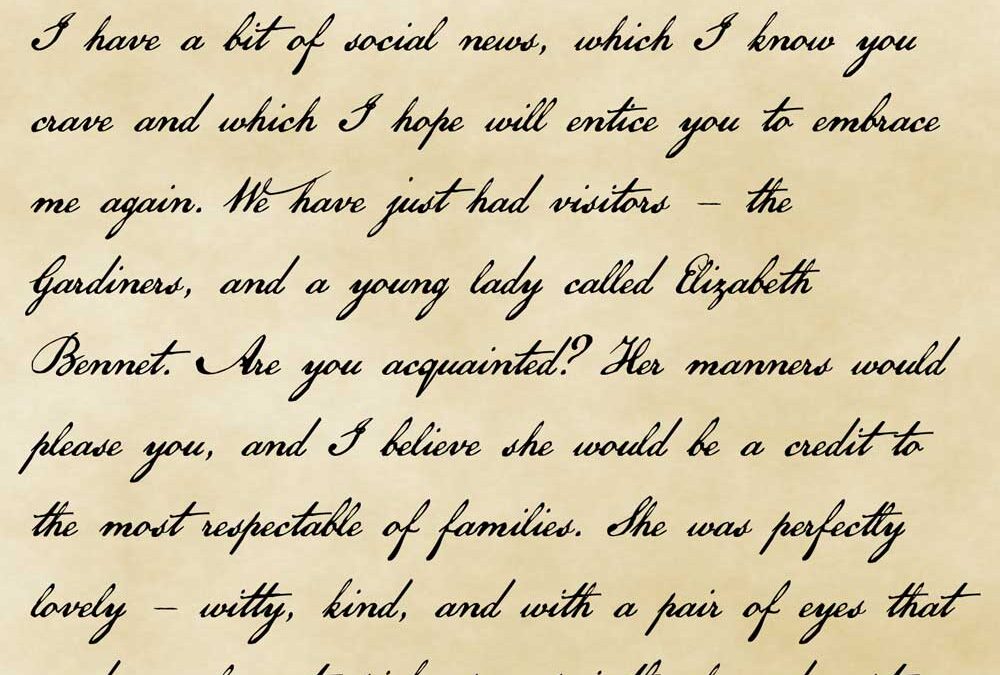 I have a bit of social news, which I know you
crave and which I hope will entice you to embrace
me again. We have just had visitors – the
Gardiners, and a young lady called Elizabeth
Bennet. Are you acquainted? Her manners would
please you, and I believe she would be a credit to
the most respectable of families. She was perfectly
lovely – witty, kind, and with a pair of eyes that